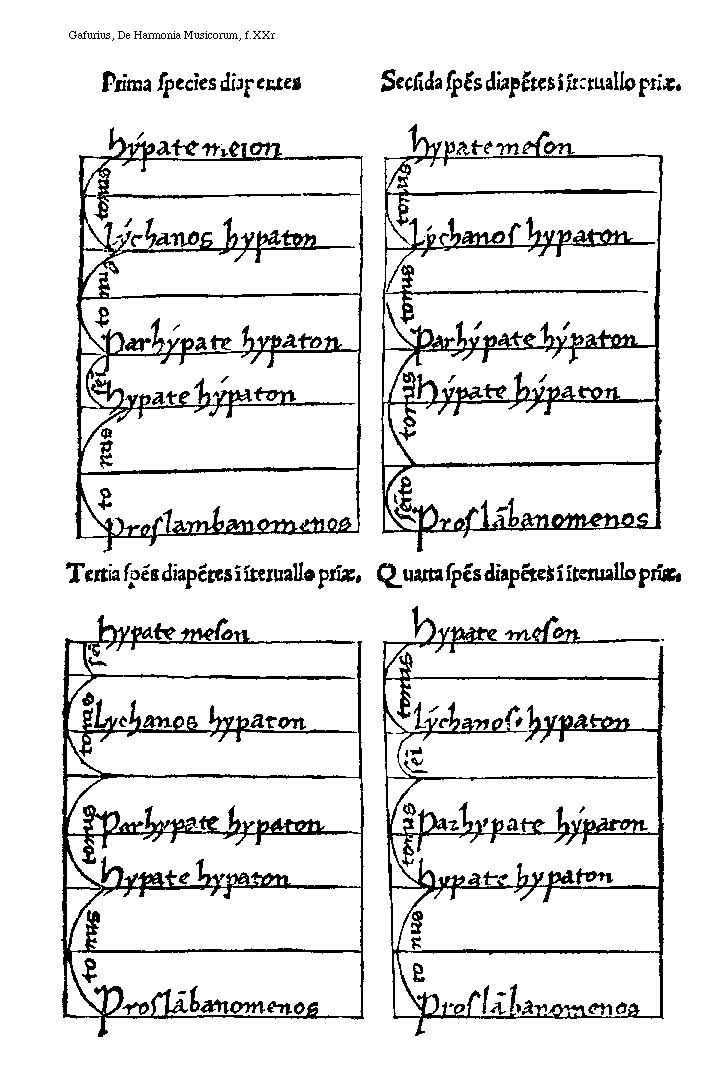 Gafurius, De Harmonia Musicorum, f.XXr
Prima ſpecies diapentes
hýpate meſon
tonus
Lýchanos hýpaton
tonus
Parhýpate hypaton
ſēi
hypate hýpaton
tonus
Proſlambanomenos
Secūda ſpēs diapētes ī īteruallo prīæ.
hypate meſon
tonus
Lýchanoſ hýpaton
tonus
Parhýpate hýpaton
Hýpate hýpaton
tonus
ſēito
Proſlābanomenos
Tertia ſpēs diapētes ī īteruallo prīæ.
hypate meſon
ſēi
Lychanos hypaton
tonus
Parhypate hypaton
tonus
hypate hypaton
tonus
Proſlābanomenos
Quarta ſpēs diapētes ī īteruallo prīæ.
hypate meſon
tonus
Lýchanoſ hýpaton
ſēi
Parhypate hýpaton
tonus
hypate hypaton
tonus
Proſlābanomenos